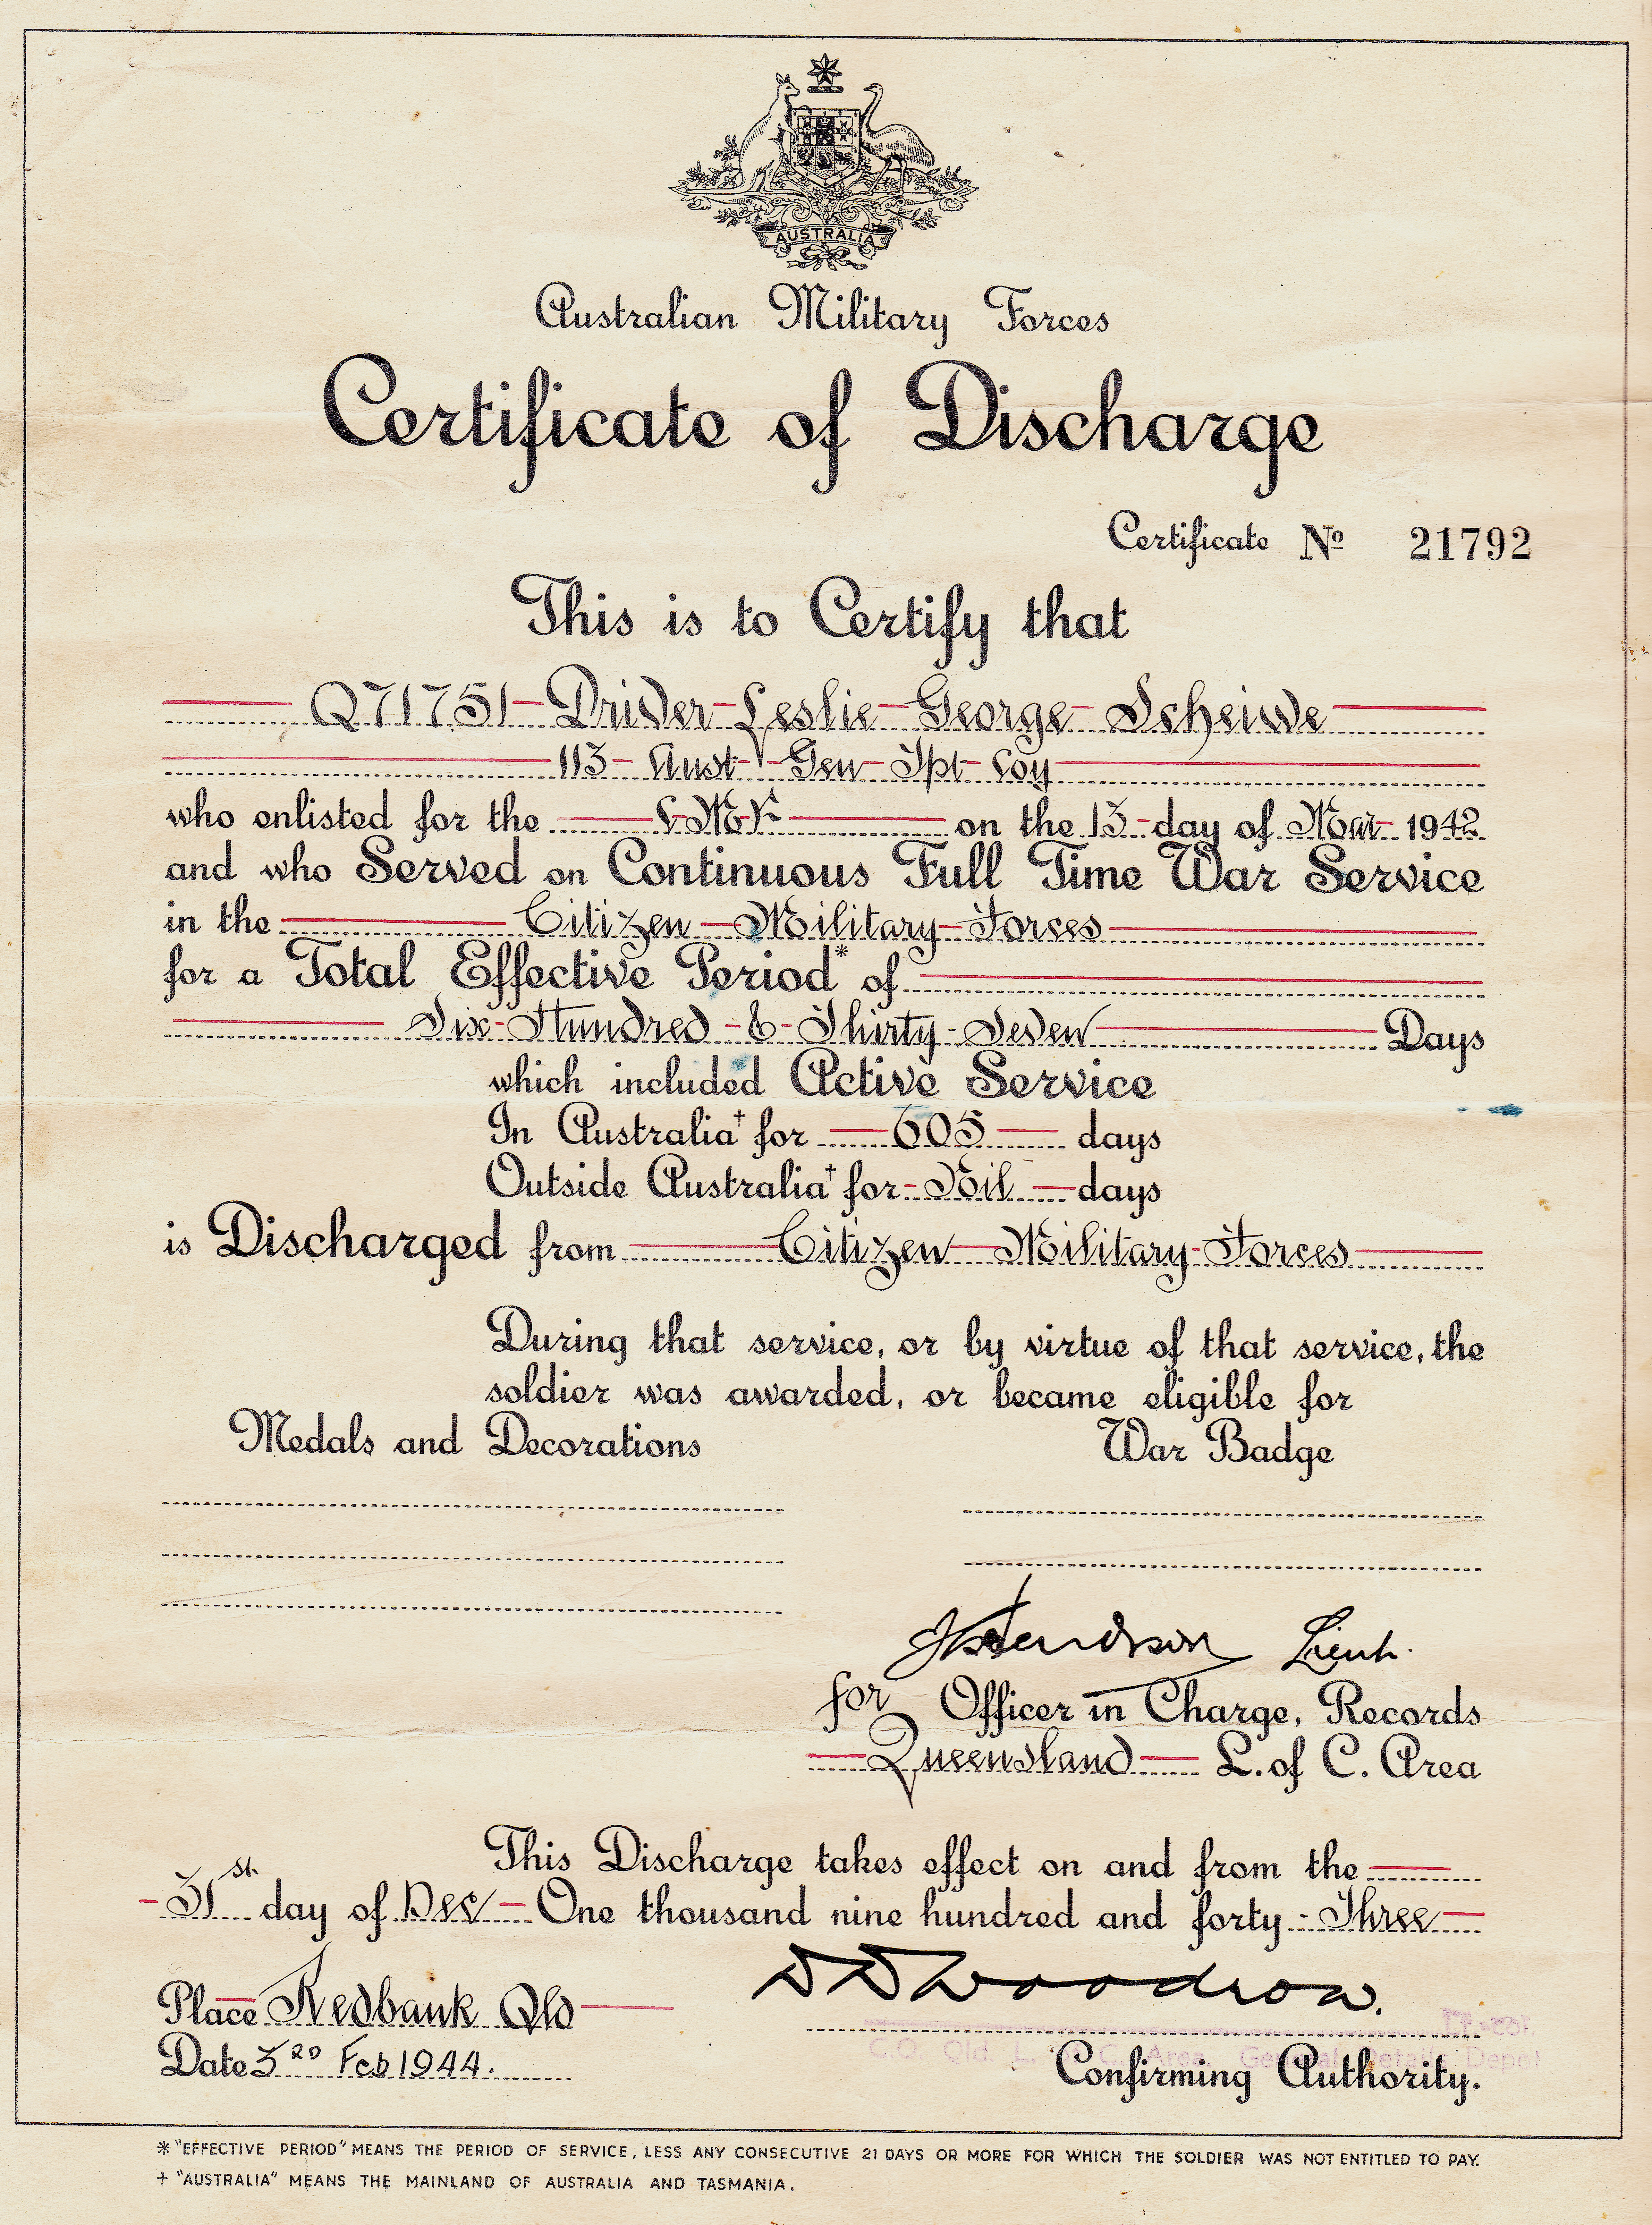 AUSTRALIA
Australian Military Forces
Certificate of Discharge
Certificate No 21792
This is to Certify that
Q71751 Driver Leslie George Scheiwe
113 Aust Gen Tpt Coy
who enlisted for the C.M.F. on the 13 day of Mar 1942
and who Served on Continuous Full Time War Service
in the Citizen Military Forces
for a Total Effective Period* of
Six Hundred & Thirty Seven Days
which included Active Service
In Australia† for 605 days
Outside Australia† for Nil days
is Discharged from Citizen Military Forces
During that service, or by virtue of that service, the
soldier was awarded, or became eligible for
Medals and Decorations War Badge
Lieut.
for Officer in Charge, Records
Queensland L. of C. Area
This Discharge takes effect on and from the
31st day of Dec One thousand nine hundred and forty-Three
Place Redbank Qld DDWoodrow.
Lt-Col.
Date 3RD Feb 1944.
C.O. Qld. L. of C. Area General Details Depot
Confirming Authority.
* "EFFECTIVE PERIOD" MEANS THE PERIOD OF SERVICE, LESS ANY CONSECUTIVE 21 DAYS OR MORE FOR WHICH THE SOLDIER WAS NOT ENTITLED TO PAY.
† "AUSTRALIA" MEANS THE MAINLAND OF AUSTRALIA AND TASMANIA.